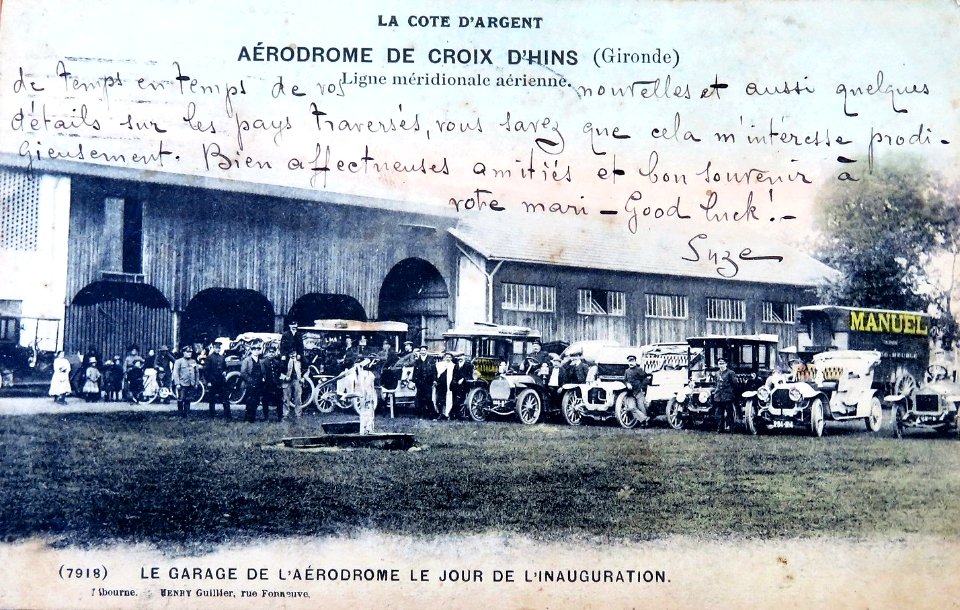 LA COTE D'ARGENT
AÉRODROME DE CROIX D'HINS (Gironde)
Ligne méridionale aérienne.
de temps en temps de vos nouvelles et aussi quelques
détails sur les pays traversés, vous savez que cela m'intéresse prodi-
gieusement. Bien affectueuses amitiés et bon souvenir à
votre mari - Good luck! -
Suze
MANUEL
(7918) LE GARAGE DE L'AÉRODROME LE JOUR DE L'INAUGURATION.
Libourne. - HENRY Guillier, rue Fonneuve.